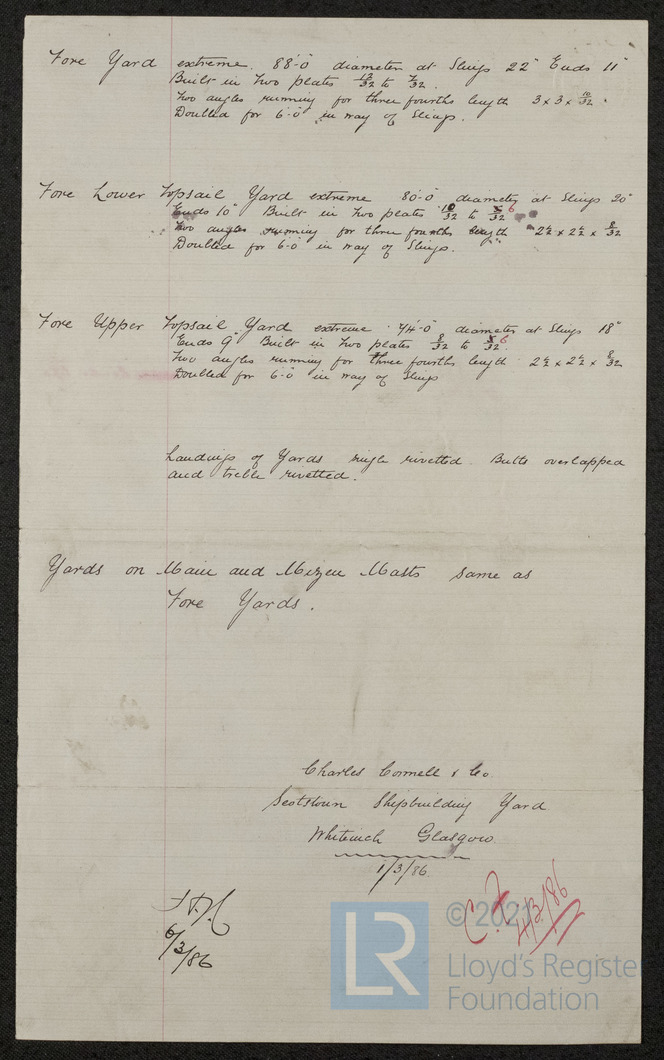 Fore Yard extreme. 88'-0" diameter at Slings 22" Ends 11"
Built in two plates 12/32 to 7/32.
Two angles running for three fourths length 3 x 3 x 10/32.
Doubled for 6'-0" in way of Slings.
Fore Lower Topsail Yard extreme 80'-0" diameter at Slings 20"
Ends 10" Built in two plates 10/32 to 6/32
Two angles running for three fourths length 2½ x 2½ x 8/32
Doubled for 6'-0" in way of Slings.
Fore Upper Topsail Yard extreme 74'-0" diameter at Slings 18"
Ends 9" Built in two plates 8/32 to 6/32
Two angles running for three fourths length 2½ x 2½ x 8/32
Doubled for 6'-0" in way of Slings
Landings of Yards single rivetted. Butts overlapped
and treble rivetted.
Yards on Main and Mizen Masts same as
Fore Yards.
Charles Connell & Co.
Scotstoun Shipbuilding Yard
Whiteinch Glasgow.
1/3/86.
6/3/86
4/3/86
LR
© 2021
Lloyd's Register
Foundation